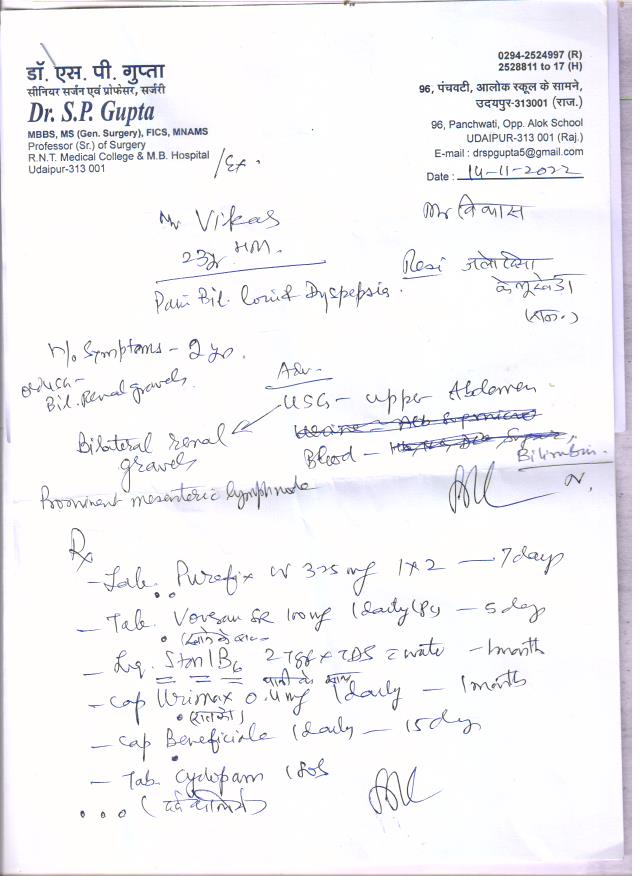 डॉ. एस. पी. गुप्ता
सीनियर सर्जन एवं प्रोफेसर, सर्जरी
Dr. S.P. Gupta
MBBS, MS (Gen. Surgery), FICS, MNAMS
Professor (Sr.) of Surgery
R.N.T. Medical College & M.B. Hospital
Udaipur-313 001
0294-2524997 (R)
2528811 to 17 (H)
96, पंचवटी, आलोक स्कूल के सामने,
उदयपुर-313001 (राज.)
96, Panchwati, Opp. Alok School
UDAIPUR-313 001 (Raj.)
E-mail : drspgupta5@gmail.com
Date : 14-11-2022
Mr Vikas
Mr विकास
23yr
Resi
Pain Bil. Dyspepsia.
H/o Symptoms - 2 yr.
Bil. Renal gravels.
Adv.
USG - upper Abdomen
Bilateral renal
gravels
Blood -
Bilirubin
N.
Prominent mesenteric lymphnode
Rx
- Tab. 325 mg 1x2 - 7 days
- Tab. Voveran SR 100 mg 1 daily - 5 days
- Liq. Ston 1 B6 2 TSF x TDS c water - 1 month
पानी के साथ
- Cap Urimax 0.4 mg 1 daily - 1 month
(रात को)
- Cap Beneficiale 1 daily - 15 dys
- Tab. Cyclopam 1 SOS
(दर्द के लिये)